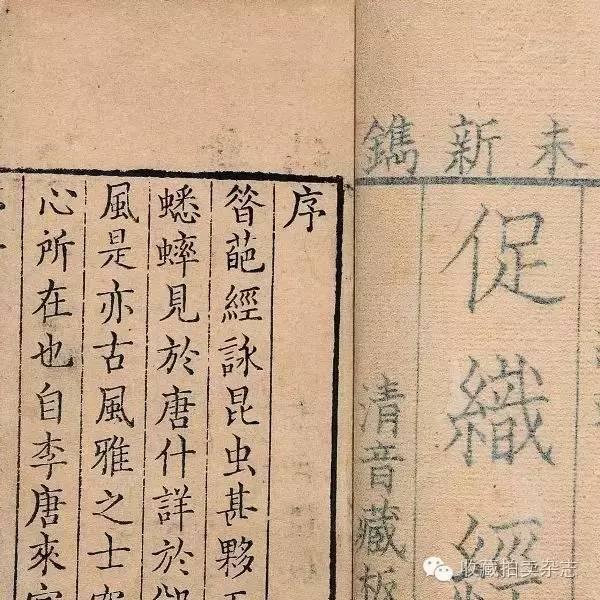 未新鐫
促織經
清音藏板
序
葩經詠昆虫甚夥
蟋蟀見於唐什詳於
風是亦古風雅之士
心所在也自李唐來
收藏拍卖杂志